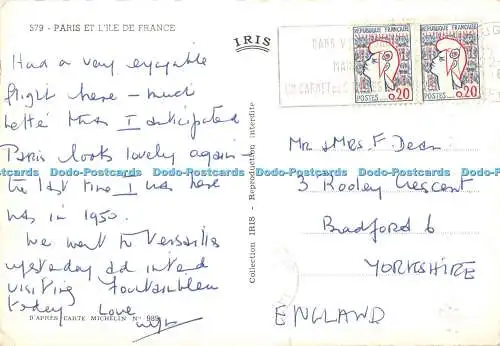 579 - PARIS ET L'ILE DE FRANCE
IRIS
Had a very enjoyable
flight here - much
better than I anticipated
Paris looks lovely again
the last time I was here
was in 1950.
We went to Versailles
yesterday and intend
visiting Fountainbleu
today Love
D'APRÈS CARTE MICHELIN N° 989
Collection IRIS - Reproduction interdite
DANS V
UN CARNET DE
REPUBLIQUE FRANÇAISE
POSTES 0,20
REPUBLIQUE FRANÇAISE
POSTES 0,20
Mr & Mrs. F. Dean
3 Rooley Crescent
Bradford 6
YORKSHIRE
ENGLAND
Dodo-Postcards Dodo-Postcards Dodo-Postcards Dodo-Postcards Dodo-Postcards